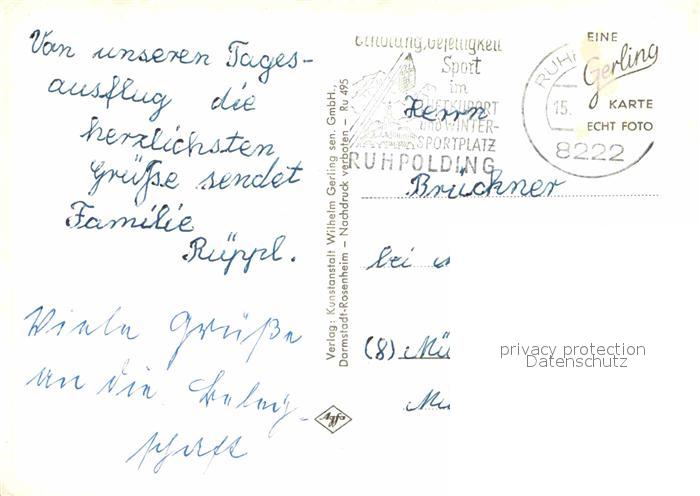 Von unseren Tages-
ausflug die
herzlichsten
Grüße sendet
Familie
Rüppl.
Viele Grüße
an die Beleg-
schaft
Verlag: Kunstanstalt Wilhelm Gerling sen. GmbH.,
Darmstadt-Rosenheim – Nachdruck verboten – Ru 495
Agfa
Erholung, Geselligkeit
Sport
im
LUFTKURORT
UND WINTER-
SPORTPLATZ
RUHPOLDING
RUH
15.
8222
EINE
Gerling
KARTE
ECHT FOTO
Herrn
Brückner
bei
(8) Mü
privacy protection
Datenschutz